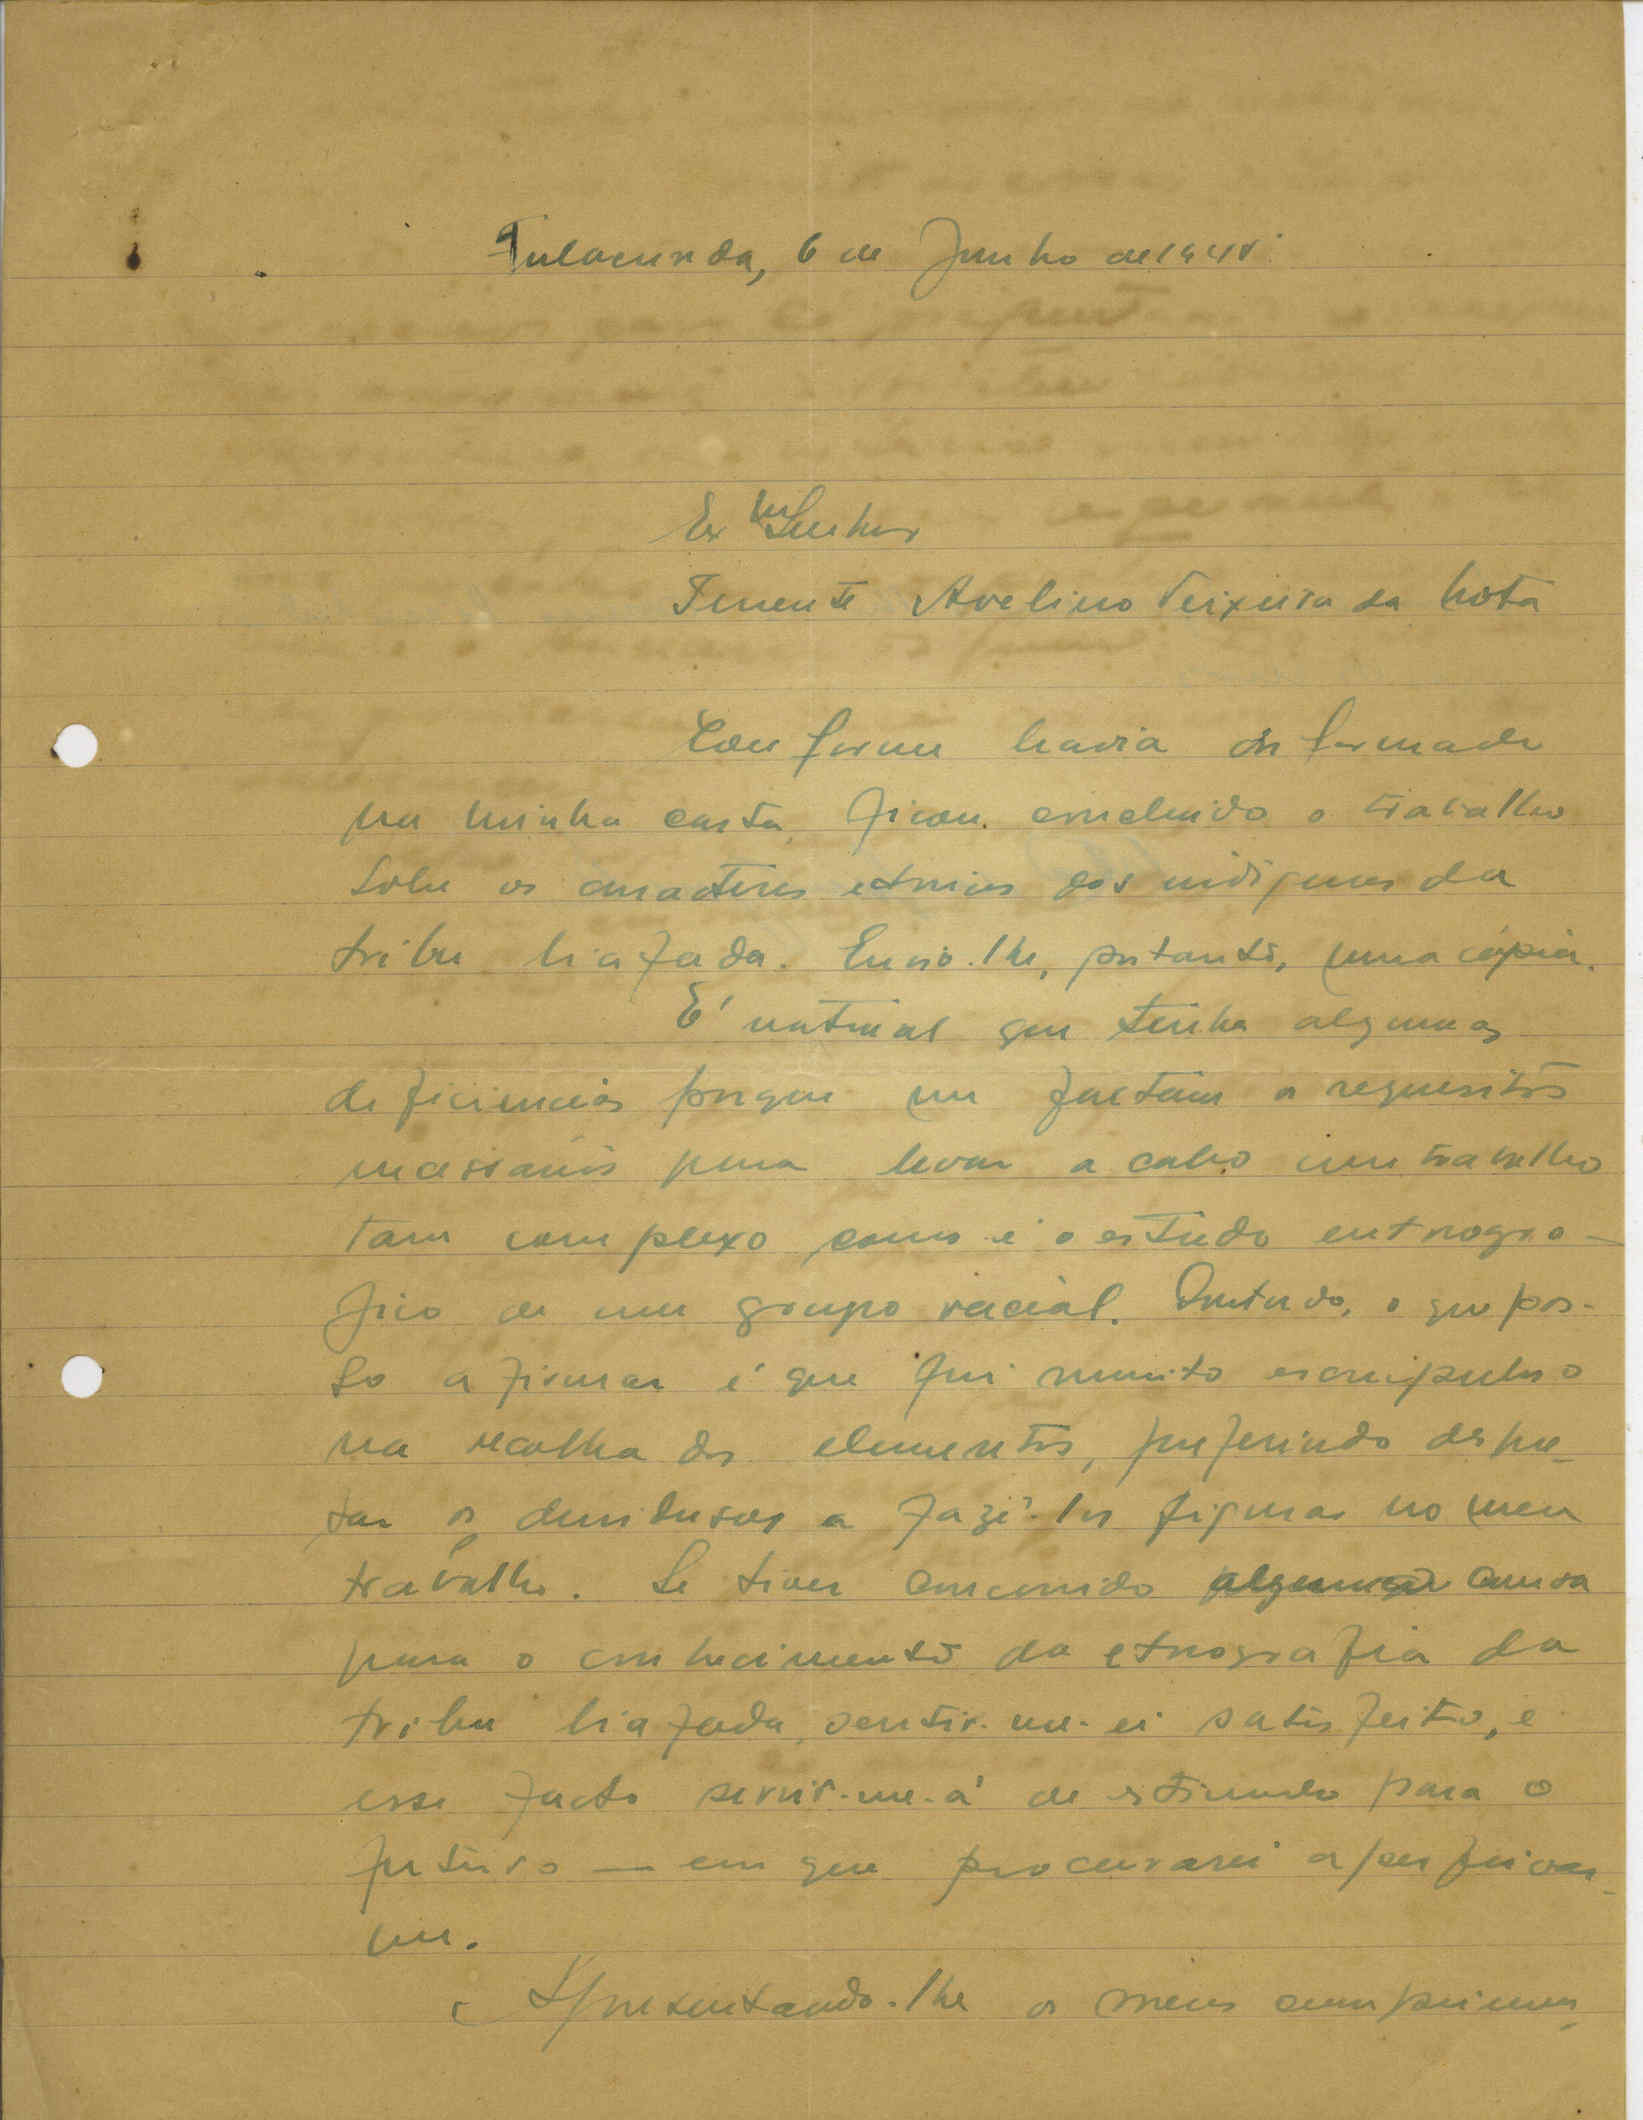 Fulacunda, 6 de Junho de 194
Exm Senhor
Tenente Avelino Teixeira da Mota
Conforme havia informado
na minha carta, ficou concluido o trabalho
sobre os caracteres etnicos dos indigenas da
tribu biafada. Envio-lhe, portanto, uma cópia.
É natural que tenha algumas
deficiencias porque me faltam os requesitos
necessarios para levar a cabo um trabalho
tam complexo como é o estudo entnogra-
fico de um grupo racial. Contudo, o que pos-
so afirmar é que fui muito escrupuloso
na recolha dos elementos, preferindo
os duvidosos a fazê-los figurar no meu
trabalho. Se tiver concorrido
para o conhecimento da etnografia da
tribu biafada, sentir-me-ei satisfeito, e
esse facto servir-me-á de estimulo para o
futuro — em que procurarei aperfeiçoar-
me.
Apresentando-lhe os meus cumprimen-